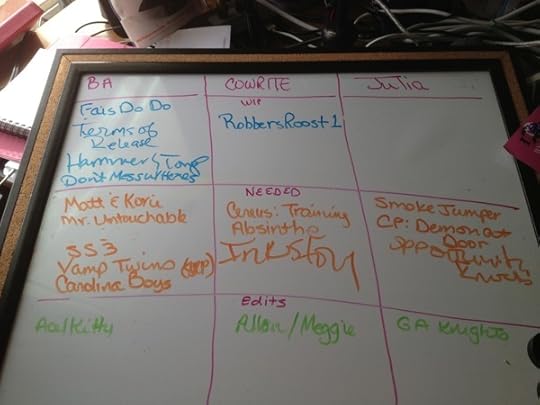 BA
COWRITE
Julia
WIP
Fais Do Do
Terms of
Release
Hammer & Tong
Don't Mess w/ Heres
Robbers Roost 1
NEEDED
Matt & Kori
Mr. Untouchable
SS3
Vamp Twins
Carolina Boys
Census: Training
Absinthe
Ink Story
Smoke Jumper
CP: Demon at
Door
Opportunity
Knocks
Edits
Acel Kitty
Allan / Meggie
GA Knights